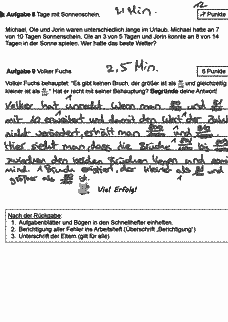 4 Min.
12
Aufgabe 8 Tage mit Sonnenschein.
7 Punkte
Michael, Ole und Jorin waren unterschiedlich lange im Urlaub. Michael hatte an 7
von 10 Tagen Sonnenschein. Ole an 3 von 5 Tagen und Jorin konnte an 8 von 14
Tagen in der Sonne spielen. Wer hatte das beste Wetter?
2,5 Min.
Aufgabe 9 Volker Fuchs
6 Punkte
Volker Fuchs behauptet: "Es gibt keinen Bruch, der größer ist als und gleichzeitig
kleiner ist als ." Hat er recht mit seiner Behauptung? Begründe deine Antwort!
Volker hat unrecht. Wenn man und
mit 10 erweitert und damit den Wert der Zahl
nicht verändert, erhält man und
Hier sieht man, dass die Brüche bis
zwischen den beiden Brüchen liegen und somit
mind. 1 Bruch existiert, der kleiner als und
größer als ist.
Viel Erfolg!
Nach der Rückgabe:
1. Aufgabenblätter und Bögen in den Schnellhefter einheften.
2. Berichtigung aller Fehler ins Arbeitsheft (Überschrift „Berichtigung")
3. Unterschrift der Eltern (gilt für alle)